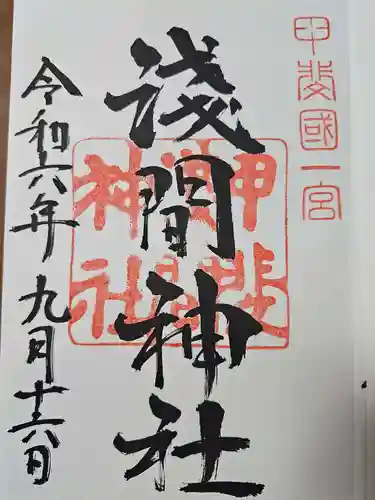 甲斐國一宮
淺間神社
甲斐
神社
令和六年九月十六日